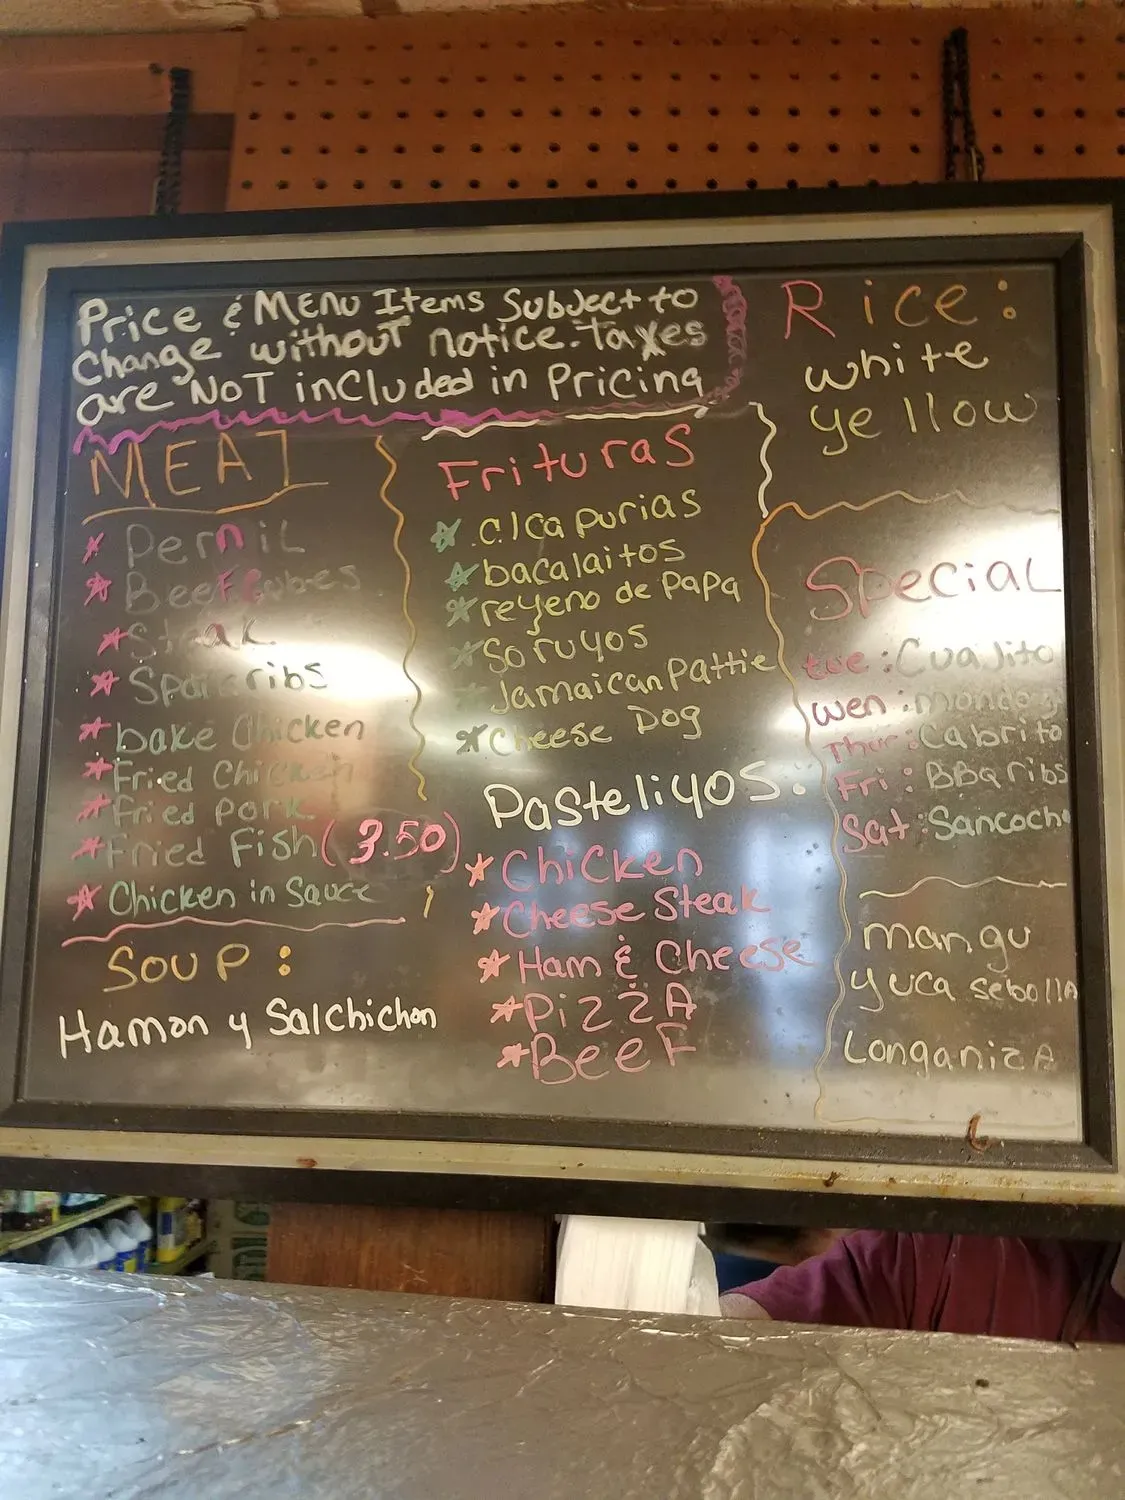 Price & Menu Items Subject to
Change without notice. Taxes
are NOT included in Pricing
MEAT
Pernil
Beef Cubes
Steak
Spareribs
bake Chicken
Fried Chicken
Fried Pork
Fried Fish (3.50)
Chicken in Sauce
Soup:
Hamon y Salchichon
Frituras
alcapurias
bacalaitos
reyeno de Papa
Soruyos
Jamaican Pattie
Cheese Dog
Pasteliyos:
Chicken
Cheese Steak
Ham & Cheese
PizzA
BeeF
Rice:
white
yellow
Special
tue: Cuajito
wen: mondongo
Thur: Cabrito
Fri: BBQ ribs
Sat: Sancocho
mangu
yuca sebollA
LonganizA